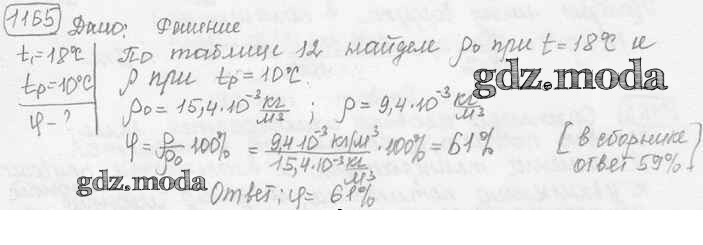 1165 Дано: Решение
t₁=18°C По таблице 12 найдем ρ₀ при t=18°C и
tр=10°C ρ при tр=10°C. gdz.moda
φ-? ρ₀=15,4·10⁻³ кг/м³ ; ρ=9,4·10⁻³ кг/м³
φ=ρ/ρ₀·100%=9,4·10⁻³ кг/м³/15,4·10⁻³ кг/м³·100%=61% [в сборнике ответ 59%.]
gdz.moda Ответ: φ=61%